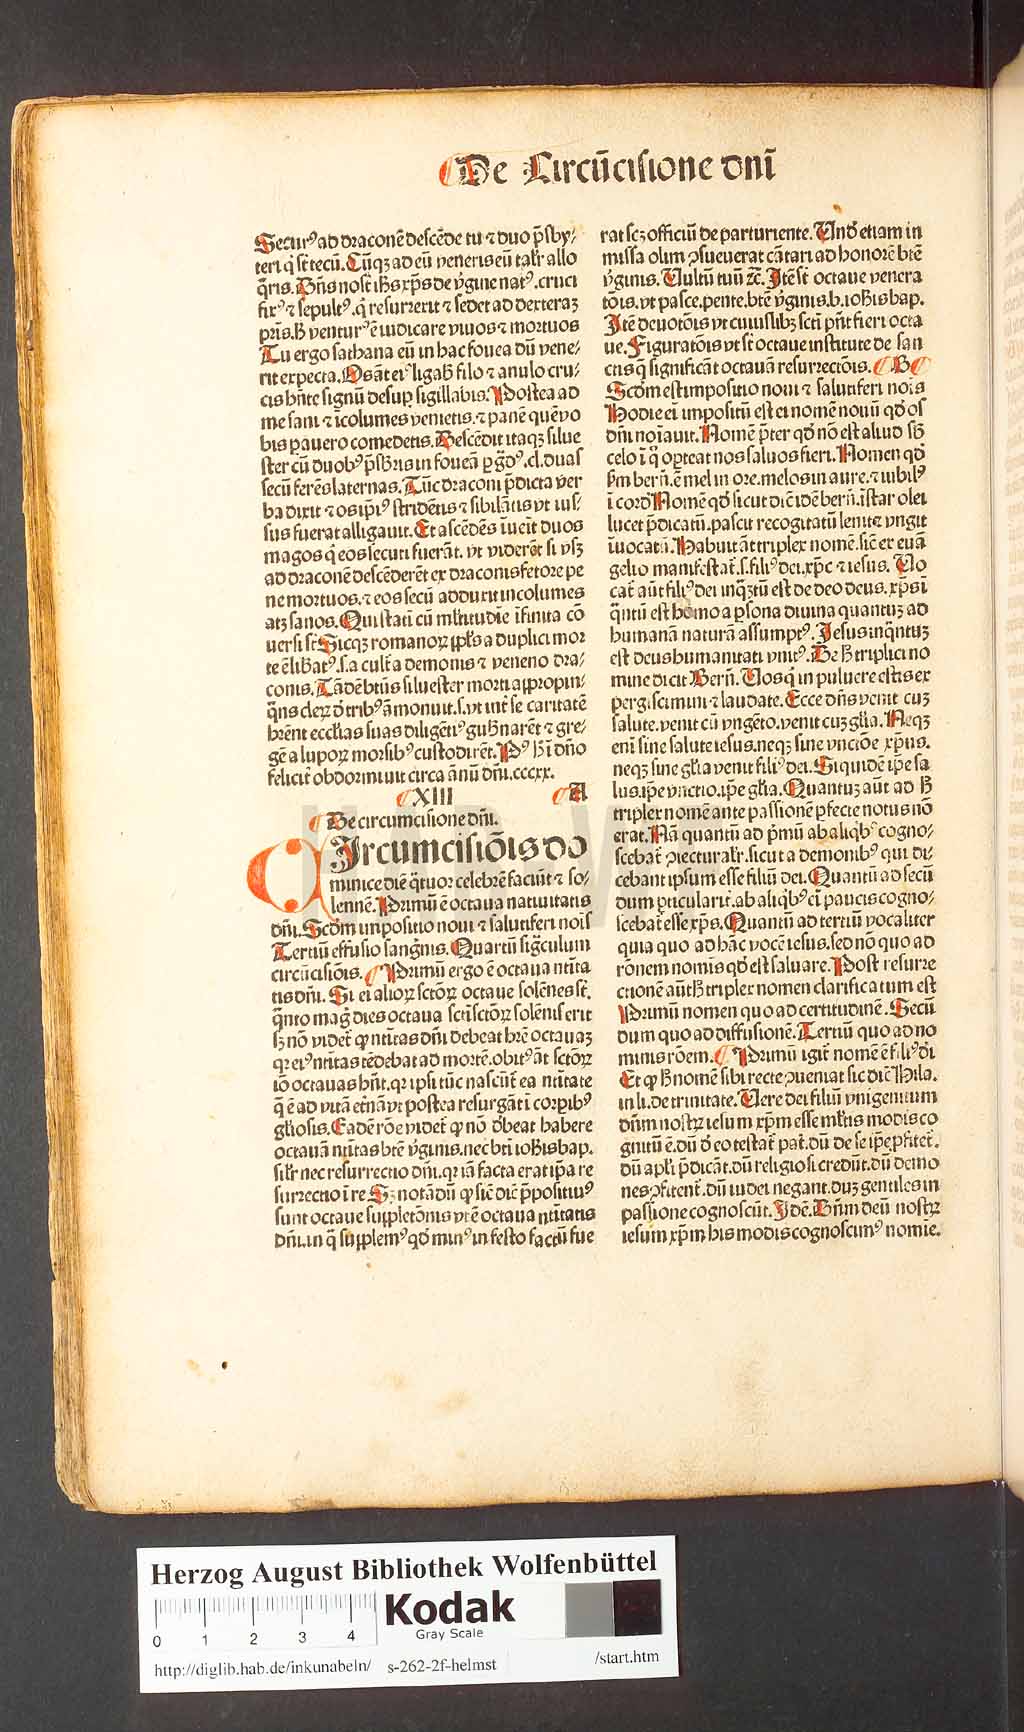 De Circūcisione dn̄i
Securꝰ ad draconē descēde tu ⁊ duo p̄sby-
teri q̇ st̄ tecū. Cūqꝫ ad eū veneris eū talr̄ allo
q̄ris. Dn̄s nost̄ ih̄s xp̄s de v̄gine natꝰ. cruci
fixꝰ ⁊ sepultꝰ. q̇ resurrexit ⁊ sedet ad dexterā
pr̄is. h̄ venturꝰ ē iudicare viuos ⁊ mortuos
Tu ergo sathana eū in hac fouea dū vene-
rit expecta. Os āt eiꝰ ligab̄ filo ⁊ anulo cru-
cis hn̄te signū desuꝑ sigillabis. Postea ad
me sani ⁊ īcolumes venietis. ⁊ panē quē vo
bis p̄auero comedetis. Descēdit itaqꝫ silue
ster cū duobꝰ p̄sb̄ris in foueā ꝑ gᷓdꝰ .cl. duas
secū ferēs laternas. Tūc draconi p̄dicta ver
ba dixit ⁊ os ip̄iꝰ stridētis ⁊ sibilātis vt ius-
sus fuerat alligauit. Et ascēdēs iuēit duos
magos q̇ eos secuti fuerāt. vt viderēt si vsqꝫ
ad draconē descēderēt ex draconis fetore pe
ne mortuos. ⁊ eos secū adduxit incolumes
atqꝫ sanos. Qui stati cū ml̄titudie īfinita cō
uersi st̄. Sicqꝫ romanoꝝ ppl̄s a duplici mor
te ē lib̄atꝰ. s. a cult̄a demonis ⁊ veneno dra-
conis. Tādē bt̄us siluester morti appropin-
q̄ns clerꝫ d̄ tribꝰ āmonuit. s. vt int̄ se caritatē
hr̄ent eccl̄ias suas diligētiꝰ gub̄narēt ⁊ gre-
gē a lupoꝝ morsibꝰ custodirēt. Pꝰ h̄ ī dn̄o
felicit̄ obdormiuit circa ānū dn̄i. cccxx.
XIII A
De circumcisione dn̄i.
CIrcumcisiōis do
minice diē q̄tuor celebrē faciūt ⁊ so-
lennē. Primū ē octaua natiuitatis
dn̄i. Scd̄m impositio noui ⁊ salutiferi nois̄
Tertiū effusio sanḡnis. Quartū siḡculum
circūcisiōis. Primū ergo ē octaua nt̄ita
tis dn̄i. Si ei alioꝝ sctōꝝ octaue solēnes st̄.
q̄nto maḡ dies octaua sctī sctōꝝ solēnis erit
sꝫ nō videt̄ ꝙ nt̄itas dn̄i debeat hr̄e octauaꝫ
qꝛ eiꝰ nt̄itas tēdebat ad mortē. obitꝰ āt sctōꝝ
iō octauas hn̄t. qꝛ ipsi tūc nascūt̄ ea nt̄itate
q̄ ē ad vitā et̄nā vt postea resurgāt ī corꝑibꝰ
gl̄iosis. Eadē rōe videt̄ ꝙ nō d̄beat habere
octauā nt̄itas bt̄e v̄ginis. nec bt̄i ioh̄is bap.
sil̄r nec resurrectio dn̄i. qꝛ iā facta erat ip̄a re
surrectio ī re. Sꝫ notādū ꝙ sic̄ dic̄ p̄positiuꝰ
sunt octaue suppletōnis vt ē octaua nt̄itatis
dn̄i. in q̄ supplemꝰ qd̄ minꝰ in festo factū fue
rat scꝫ officiū de parturiente. Vnd̄ etiam in
missa olim ↄsueuerat cātari ad honorē bt̄e
v̄ginis. Vultū tuū ⁊c̄. Itē st̄ octaue venera
tōis. vt pasce. pente. bt̄e v̄ginis. b. ioh̄is bap.
Itē deuotōis vt cuiuslibꝫ scti pn̄t fieri octa
ue. Figuratōis vt st̄ octaue institute de san
ctis q̄ significāt octauā resurrectōis. B
Scd̄m est impositio noui ⁊ salutiferi nois̄
Hodie ei impositū est ei nomē nouū qd̄ os
dn̄i noīauit. Nomē p̄ter qd̄ nō est aliud sb̄
celo ī q̇ oꝑteat nos saluos fieri. Nomen qd̄
ẜm bern̄. ē mel in ore. melos in aure. ⁊ iubilꝰ
ī cord̄. Nomē qd̄ sicut dic̄ idē bern̄. īstar olei
lucet p̄dicatū. pascit recogitatū lenit ⁊ vngit
īuocatū. Habuit āt triplex nomē. sic̄ ex euā
gelio manifestat̄. s. filiꝰ dei. xp̄c ⁊ iesus. Uo
cat̄ aūt filiꝰ dei inq̄ꝫtū est de deo deus. xp̄s ī
q̄ntū est homo a ꝑsona diuina quantuꝫ ad
humanā naturā assumptꝰ. Jesus inq̄ntuꝫ
est deus humanitati vnitꝰ. De h̄ triplici no
mine dicit Bern̄. Vos q̇ in puluere estis ex
pergiscimini ⁊ laudate. Ecce dn̄s venit cuꝫ
salute. venit cū vngēto. venit cuꝫ gl̄ia. Neqꝫ
eni sine salute iesus. neqꝫ sine vnctiōe xp̄us.
neqꝫ sine gl̄ia venit filiꝰ dei. Siquidē ip̄e sa
lus. ip̄e vnctio. ip̄e gl̄ia. Quantuꝫ aūt ad h̄
triplex nomē ante passionē ꝑfecte notus nō
erat. Nā quantū ad pꝛ̄mū ab aliq̇bꝰ cogno-
scebat̄ ↄiecturalr̄. sicut a demonibꝰ qui di-
cebant ipsum esse filiū dei. Quantū ad secū
dum ꝑticularit̄. ab aliq̇bꝰ ei paucis cogno-
scebat̄ esse xp̄s. Quantū ad tertiū vocaliter
quia quo ad hāc vocē iesus. sed nō quo ad
rōnem nomīs qd̄ est saluare. Post resurre
ctionē aūt h̄ triplex nomen clarificatum est
Primū nomen quo ad certitudinē. Secū
dum quo ad diffusionē. Tertiū quo ad no
minis rōem. Primū igit̄ nomē ē filiꝰ d̄i
Et ꝙ h̄ nomē sibi recte ↄueniat sic dic̄ Hila.
in li. de trinitate. Vere dei filiū vnigenitum
dn̄m nostrꝫ iesum xp̄m esse ml̄tis modis co
gnitū ē. dū d̄ eo testat̄ pat̄. dū de se ip̄e ꝓfitet̄.
dū apl̄i p̄dicāt. dū religiosi credūt. dū demo
nes ↄfitent̄. dū iudei negant. duꝫ gentiles in
passione cognoscūt. Idē. Dn̄m deū nostrꝫ
iesum xp̄m his modis cognoscimꝰ nomīe.
Herzog August Bibliothek Wolfenbüttel
0 1 2 3 4
Kodak
Gray Scale
http://diglib.hab.de/inkunabeln/ s-262-2f-helmst /start.htm